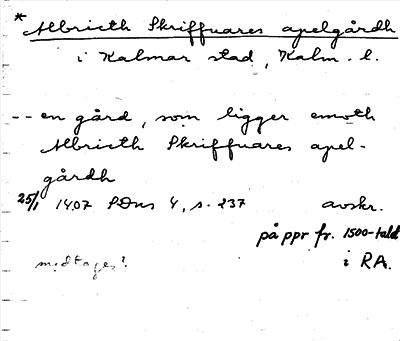 * Albricth Skriffuares apelgårdh
i Kalmar stad, Kalm. l.
-- en gård, som ligger emoth
Albricth Skriffuares apel-
gårdh
25/1 1407 PDns 4, s. 237 avskr.
på ppr fr. 1500-talet
i RA.
medtages?